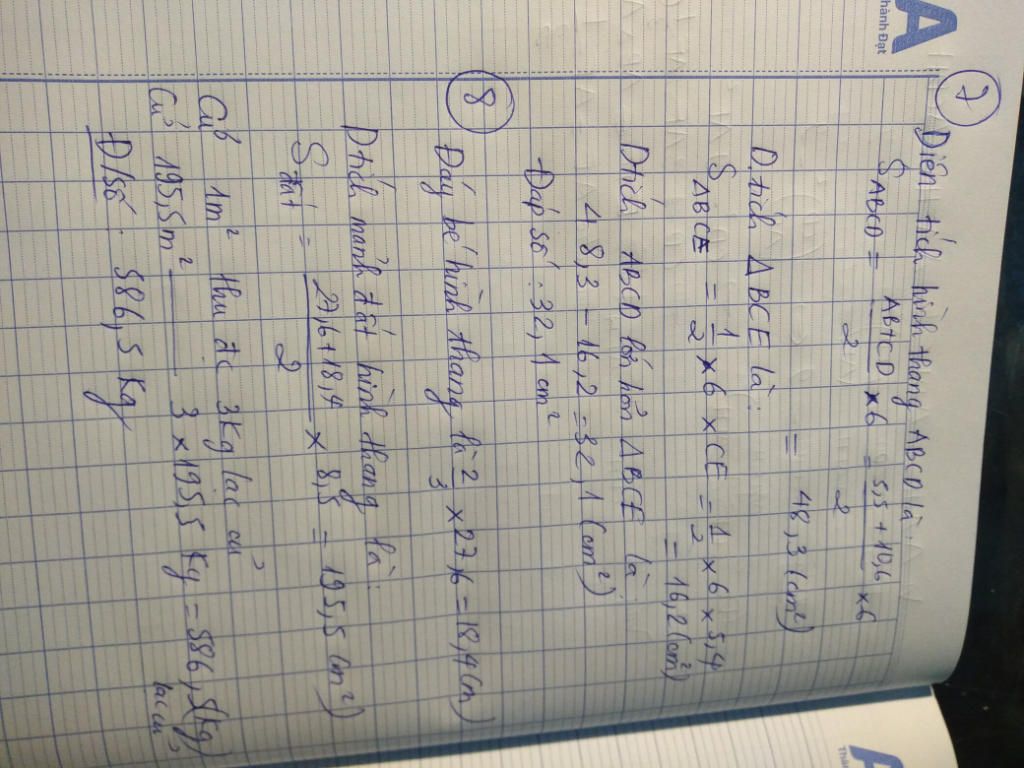 A
Thành Đạt
7
Diện tích hình thang ABCD là:
S ABCD = AB+CD / 2 × 6 = 5,5 + 10,6 / 2 × 6
= 48,3 (cm²)
D.tích Δ BCE là:
S ΔBCE = 1/2 × 6 × CE = 1/2 × 6 × 5,4
= 16,2 (cm²)
Dtích ABCD lớn hơn Δ BCE là
48,3 - 16,2 = 32,1 (cm²)
Đáp số: 32,1 cm²
8
Đáy bé hình thang là 2/3 × 27,6 = 18,4 (m)
Dtích mảnh đất hình thang là:
S đất = 27,6+18,4 / 2 × 8,5 = 195,5 (m²)
Cứ 1m² thu đc 3Kg lạc củ
Cứ 195,5m² 3 × 195,5 Kg = 586,5 (Kg)
lạc củ
Đ/số: 586,5 Kg
A